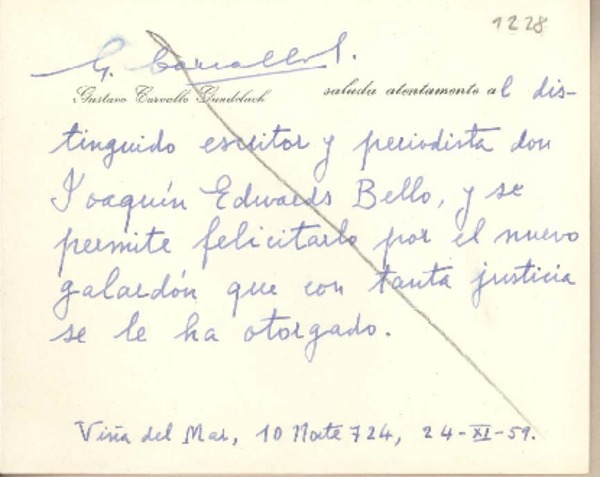 1228
G. Carvallo
Gustavo Carvallo Gundelach saluda atentamente al dis-
tinguido escritor y periodista don
Joaquín Edwards Bello, y se
permite felicitarlo por el nuevo
galardón que con tanta justicia
se le ha otorgado.
Viña del Mar, 10 Norte 724, 24-XI-59.